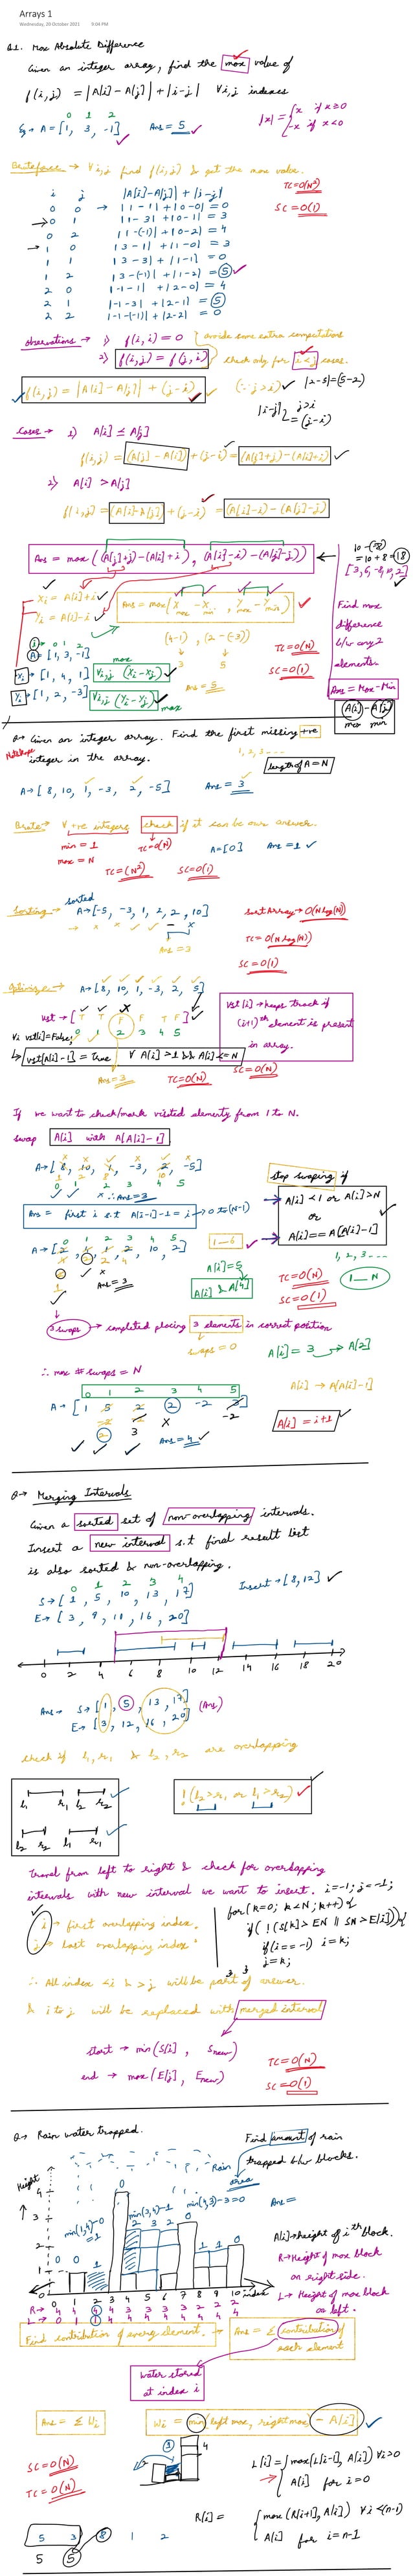 Arrays 1
Wednesday, 20 October 2021 9:04 PM
Q1. Max Absolute Difference
Given an integer array, find the max value of
f(i,j) = |A[i] - A[j]| + |i-j| ∀ i,j indexes
0 1 2
Eg → A = [1, 3, -1] Ans = 5
|x| = { x if x≥0
-x if x<0
Bruteforce → ∀ i,j find f(i,j) & get the max value.
TC = O(N²)
SC = O(1)
i j |A[i]-A[j]| + |i-j|
0 0 → |1-1| + |0-0| = 0
→ 0 1 |1-3| + |0-1| = 3
0 2 |1-(-1)| + |0-2| = 4
→ 1 0 |3-1| + |1-0| = 3
1 1 |3-3| + |1-1| = 0
1 2 |3-(-1)| + |1-2| = 5
2 0 |-1-1| + |2-0| = 4
2 1 |-1-3| + |2-1| = 5
2 2 |-1-(-1)| + |2-2| = 0
Observations → 1) f(i,i) = 0 } avoids some extra computations
2) f(i,j) = f(j,i) } check only for i<j cases.
f(i,j) = |A[i] - A[j]| + (j-i) (∵ j>i) |2-5| = (5-2)
|i-j| j>i
= (j-i)
Cases → 1) A[i] ≤ A[j]
f(i,j) = (A[j] - A[i]) + (j-i) = (A[j]+j) - (A[i]+i)
2) A[i] > A[j]
f(i,j) = (A[i]-A[j]) + (j-i) = (A[i]-i) - (A[j]-j)
Ans = max((A[j]+j)-(A[i]+i), (A[i]-i)-(A[j]-j))
10 - (-8)
= 10 + 8 = 18
[3, 6, -8, 10, 2]
Find max
difference
b/w any 2
elements.
Ans = Max - Min
A[i] - A[j]
max min
Xi = A[i]+i
Yi = A[i]-i
Ans = max(Xmax - Xmin, Ymax - Ymin)
(4-1), (2-(-3))
3 5
Ans = 5
TC = O(N)
SC = O(1)
i 0 1 2
A = [1, 3, -1]
Xi = [1, 4, 1] max ∀i,j (Xi - Xj)
Yi = [1, 2, -3] ∀i,j (Yi - Yj) max
Q → Given an integer array. Find the first missing +ve
integer in the array.
1, 2, 3 ----
length of A = N
A → [8, 10, 1, -3, 2, -5] Ans = 3
Brute → ∀ +ve integers check if it can be our answer.
min = 1 TC = O(N) A = [0] Ans = 1
max = N
TC = (N²) SC = O(1)
Sorting → sorted
A → [-5, -3, 1, 2, 2, 10]
Ans = 3
Sort Array → O(N log(N))
TC = O(N log(N))
SC = O(1)
Optimize → A → [8, 10, 1, -3, 2, 5]
vst → [T T F F T F]
∀i vst[i]=False; 0 1 2 3 4 5
↳ vst[A[i]-1] = true ∀ A[i] >1 && A[i] <= N
Ans = 3 TC = O(N) SC = O(N)
vst[i] → keeps track if
(i+1)th element is present
in array.
If we want to check/mark visited elements from 1 to N.
swap A[i] with A[A[i]-1]
A → [8, 10, 1, -3, 2, -5]
0 1 2 3 4 5
∴ Ans = 3
stop swaping if
→ A[i] <1 or A[i]>N
or
→ A[i] == A[A[i]-1]
Ans = first i s.t A[i-i]-1 = i → 0 to (N-1)
0 1 2 3 4 5
1 — 6
Ans = 3
A[i] = 5
A[i] & A[4]
TC = O(N)
SC = O(1)
1, 2, 3 ---
1 — N
3 swaps → completed placing 3 elements in correct position
swaps = 0
A[i] = 3 → A[2]
∴ max # swaps = N
A[i] → A[A[i]-1]
0 1 2 3 4 5
Ans = 4
A[i] = i+1
Q → Merging Intervals
Given a sorted set of non-overlapping intervals.
Insert a new interval s.t final result list
is also sorted & non-overlapping.
0 1 2 3 4
S → [1, 5, 10, 13, 17]
E → [3, 9, 11, 16, 20]
Insert → [8, 12]
0 2 4 6 8 10 12 14 16 18 20
Ans → S → [1, 5, 13, 17] (Ans)
E → [3, 12, 16, 20]
check if l1, r1 & l2, r2 are overlapping
l1 r1 l2 r2
l2 r2 l1 r1
!(l2>r1 or l1>r2)
Travel from left to right & check for overlapping
intervals with new interval we want to insert.
i → first overlapping index.
j → last overlapping index.
i=-1; j=-1;
for(k=0; k<N; k++){
if(!(S[k]> EN || SN > E[i])){
if(i==-1) i=k;
j=k;
} }
∴ All index <i & >j will be part of answer.
& i to j will be replaced with merged interval
start → min(S[i], Snew)
end → max(E[j], Enew)
TC = O(N)
SC = O(1)
Q → Rain water trapped.
Find amount of rain
trapped b/w blocks.
area
Rain
Height
min(1,4)-0
=1
min(3,4)-1
min(4,3)-3=0
Ans =
A[i] → height of ith block.
R → Height of max block
on right side.
L → Height of max block
on left.
0 1 2 3 4 5 6 7 8 9 10 index
R → 4 4 4 4 3 3 3 3 2 2 2
L → 0 1 1 4 4 4 4 4 4 4 4
Find contribution of every element. → Ans = Σ contribution of
each element
Water stored
at index i
Ans = Σ Wi
Wi = min(left max, right max) - A[i]
SC = O(N)
TC = O(N)
L[i] = { max(L[i-1], A[i]) ∀i>0
A[i] for i=0
R[i] = { max(R[i+1], A[i]) ∀i<(n-1)
A[i] for i=n-1
5 3 8 1 2
5 5